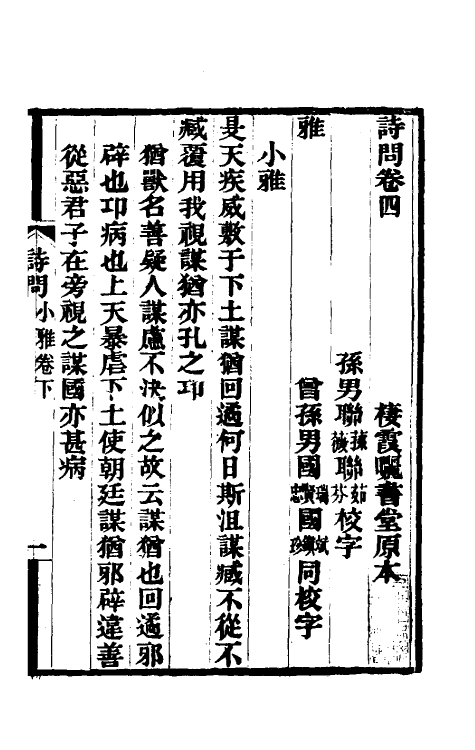 詩問卷四
棲霞曬書堂原本
孫男聯蓀薇聯茹芬校字
雅
曾孫男國瑞賢忠國斌珍同校字
小雅
旻天疾威敷于下土謀猶回遹何日斯沮謀臧不從不
臧覆用我視謀猶亦孔之卭
猶獸名善疑人謀慮不決似之故云謀猶也回遹邪
辟也卭病也上天暴虐下土使朝廷謀猶邪辟違善
從惡君子在旁視之謀國亦甚病
詩問 小雅卷下 一